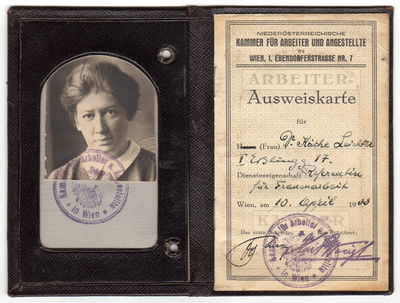 Kammer für Arbeiter
in Wien
NIEDERÖSTERREICHISCHE
KAMMER FÜR ARBEITER UND ANGESTELLTE
IN
WIEN, I. EBENDORFERSTRASSE NR. 7
ARBEITER-
Ausweiskarte
für
Herrn (Frau) Dr. Käthe Leichter
17.
Diensteseigenschaft Referentin
für Frauenarbeit
Wien, am 10. April 19
KAMMER
Der erste Präsident:
in Wien